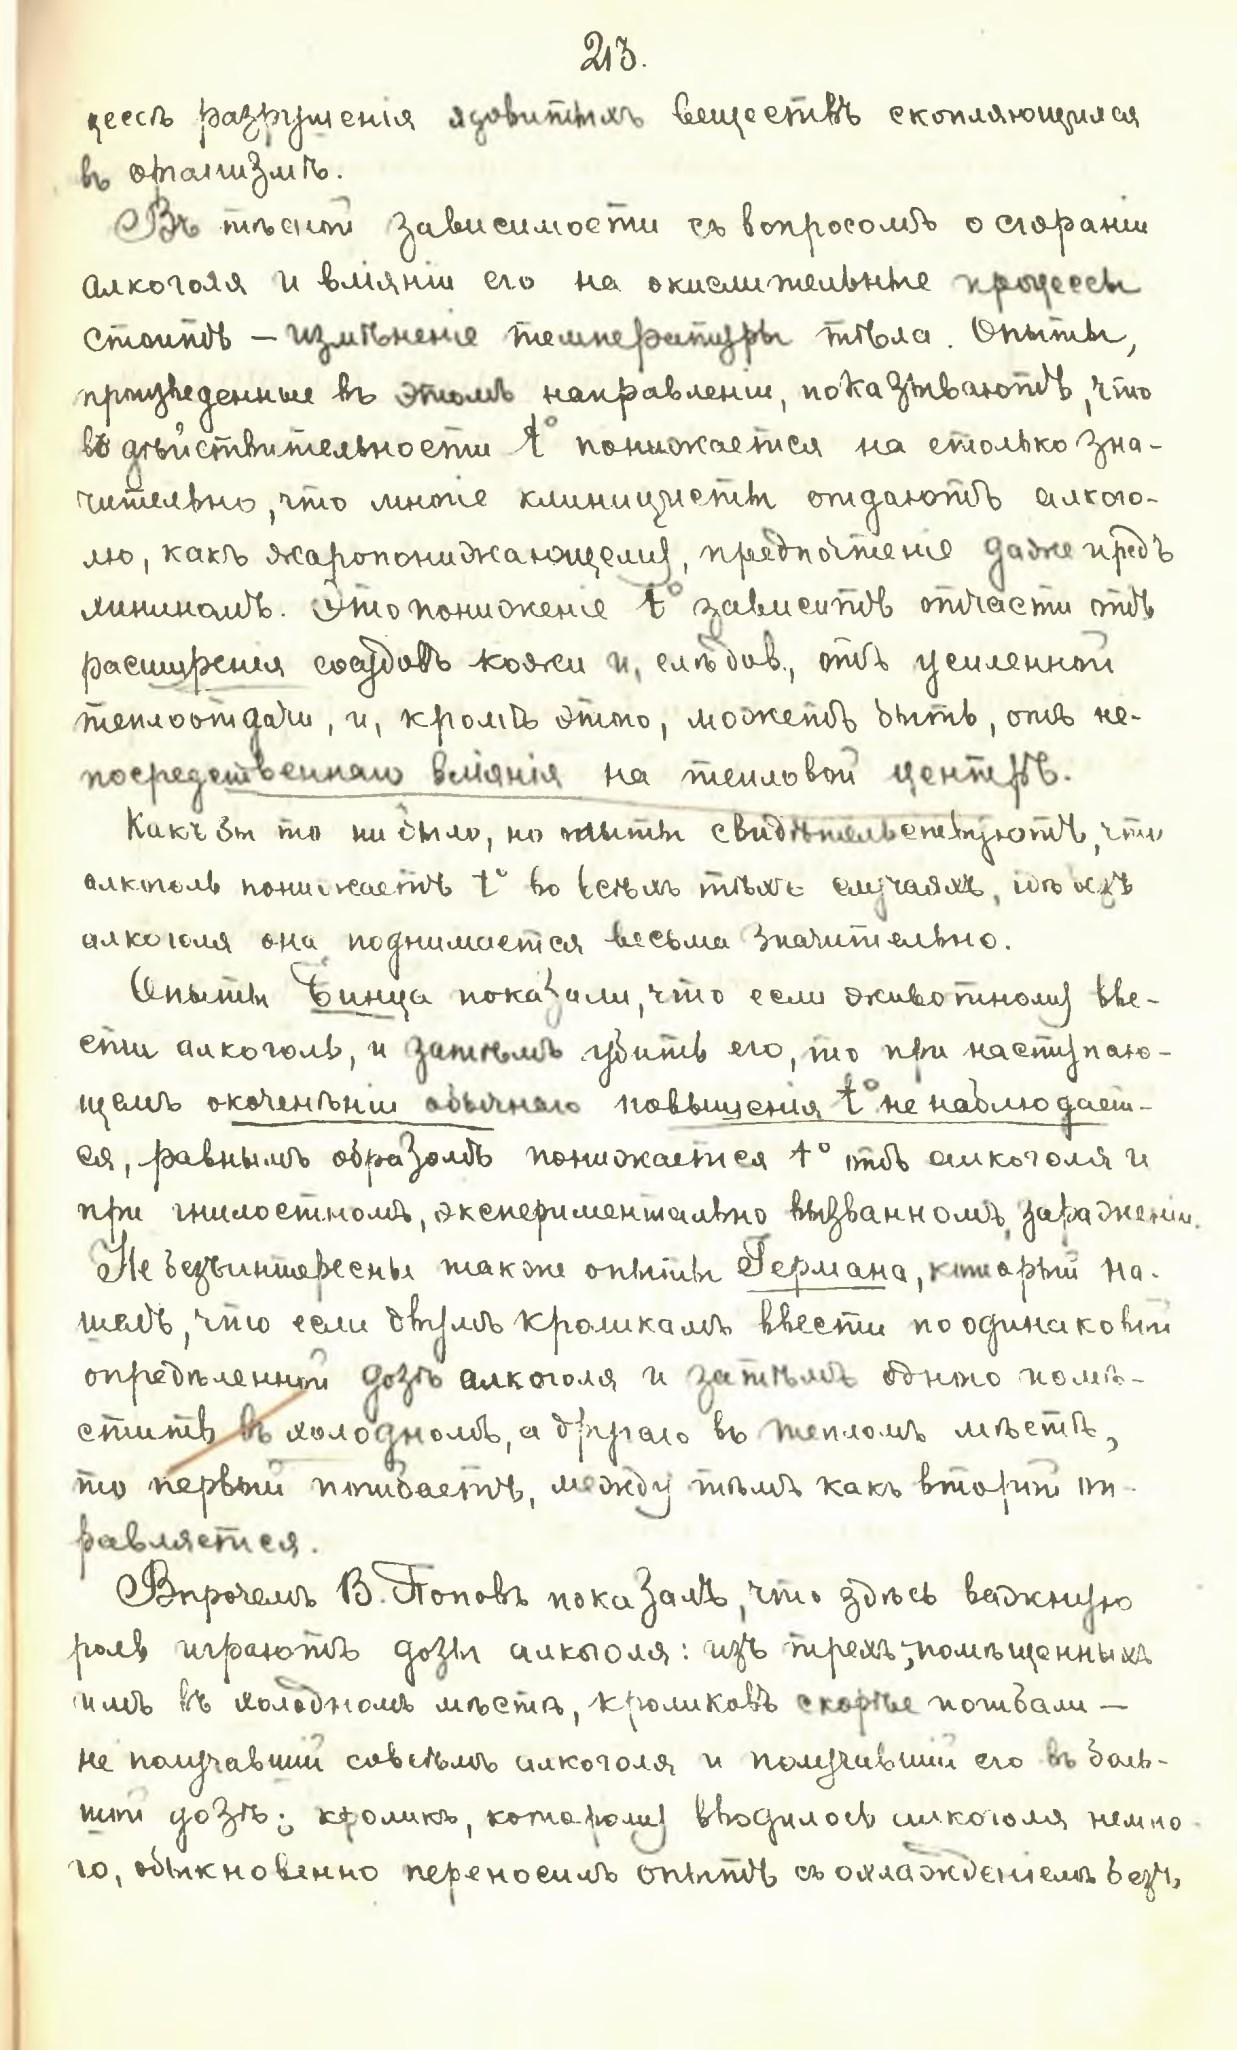 213.
цессъ разрушенія ядовитыхъ веществъ скопляющихся
въ организмѣ.
Въ тѣсной зависимости съ вопросомъ о сгораніи
алкоголя и вліяніи его на окислительные процессы
стоитъ — измѣненіе температуры тѣла. Опыты,
произведенные въ этомъ направленіи, показываютъ, что
въ дѣйствительности t° понижается на столько зна-
чительно, что многіе клиницисты отдаютъ алкого-
лю, какъ жаропонижающему, предпочтеніе даже предъ
хининомъ. Это пониженіе t° зависитъ отчасти отъ
расширенія сосудовъ кожи и, слѣдов., отъ усиленной
теплоотдачи, и, кромѣ этого, можетъ быть, отъ не-
посредственнаго вліянія на тепловой центръ.
Какъ бы то ни было, но опыты свидѣтельствуютъ, что
алкоголь понижаетъ t° во всѣхъ тѣхъ случаяхъ, гдѣ безъ
алкоголя она поднимается весьма значительно.
Опыты Бинца показали, что если животному вве-
сти алкоголь, и затѣмъ убить его, то при наступаю-
щемъ окоченѣніи обычнаго повышенія t° не наблюдает-
ся, равнымъ образомъ понижается t° отъ алкоголя и
при гнилостномъ, экспериментально вызванномъ, зараженіи.
Не безъинтересны также опыты Германа, который на-
шелъ, что если двумъ кроликамъ ввести по одинаковой
опредѣленной дозѣ алкоголя и затѣмъ одного помѣ-
стить въ холодномъ, а другаго въ тепломъ мѣстѣ,
то первый погибаетъ, между тѣмъ какъ второй оп-
равляется.
Впрочемъ В. Поповъ показалъ, что здѣсь важную
роль играютъ дозы алкоголя: изъ трехъ, помѣщенныхъ
имъ въ холодномъ мѣстѣ, кроликовъ скорѣе погибали —
не получавшій совсѣмъ алкоголя и получившій его въ боль-
шой дозѣ; кроликъ, которому вводилось алкоголя немно-
го, обыкновенно переносилъ опытъ съ охлажденіемъ безъ